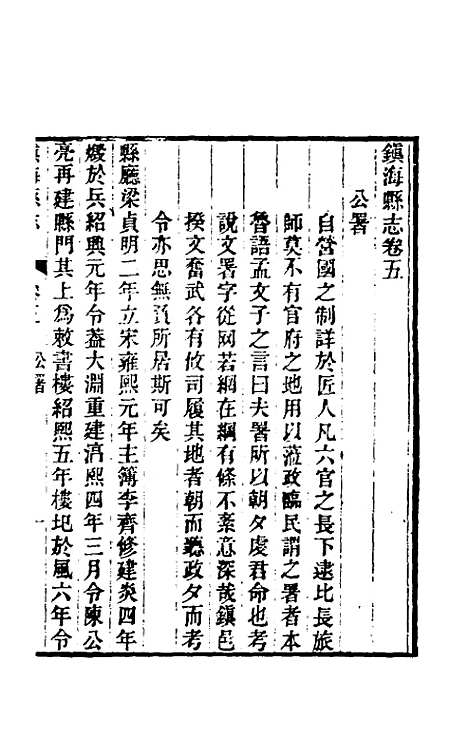 鎮海縣志卷五
公署
自營國之制詳於匠人凡六官之長下逮比長旅
師莫不有官府之地用以蒞政臨民謂之署者本
魯語孟文子之言曰夫署所以朝夕虔君命也考
說文署字從网若網在綱有條不紊意深哉鎮邑
揆文奮武各有攸司履其地者朝而聽政夕而考
令亦思無負所居斯可矣
縣廳梁貞明二年立宋雍熙元年主簿李齊修建炎四年
燬於兵紹興元年令蓋大淵重建淳熙四年三月令陳公
亮再建縣門其上爲敕書樓紹熙五年樓圮於風六年令
鎮海縣志
卷五
公署
一